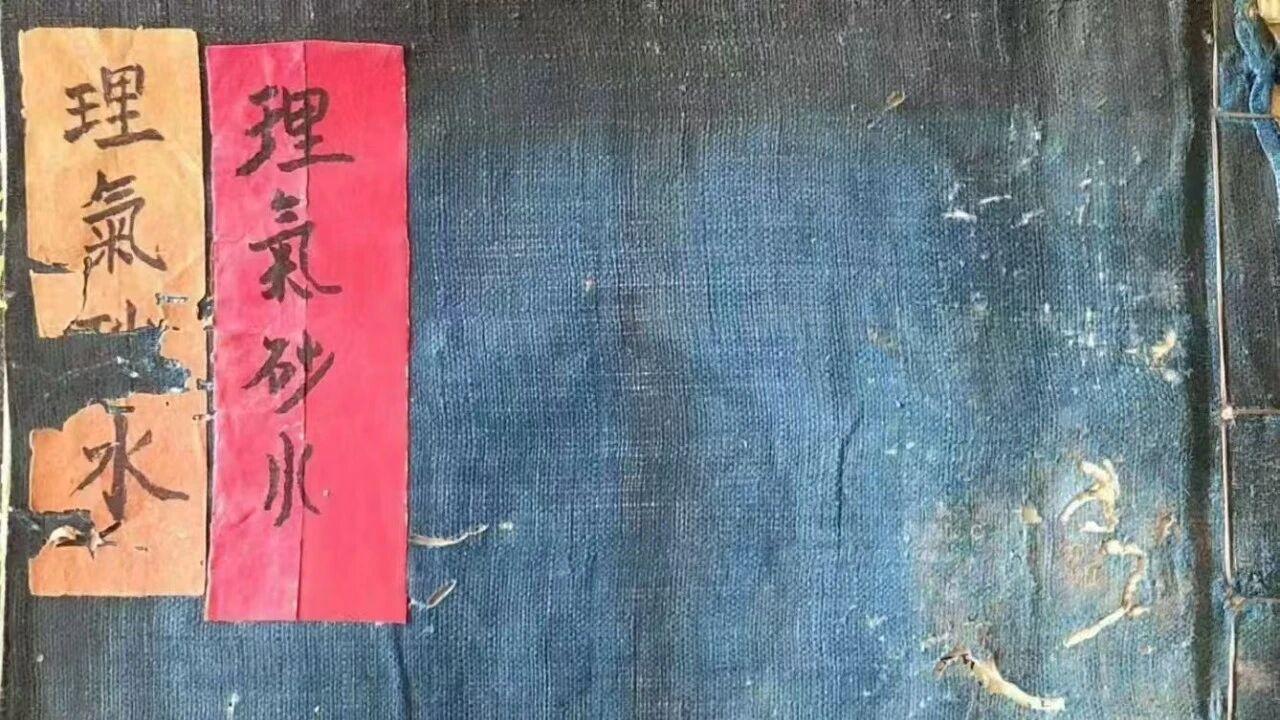 理氣砂水
理氣水